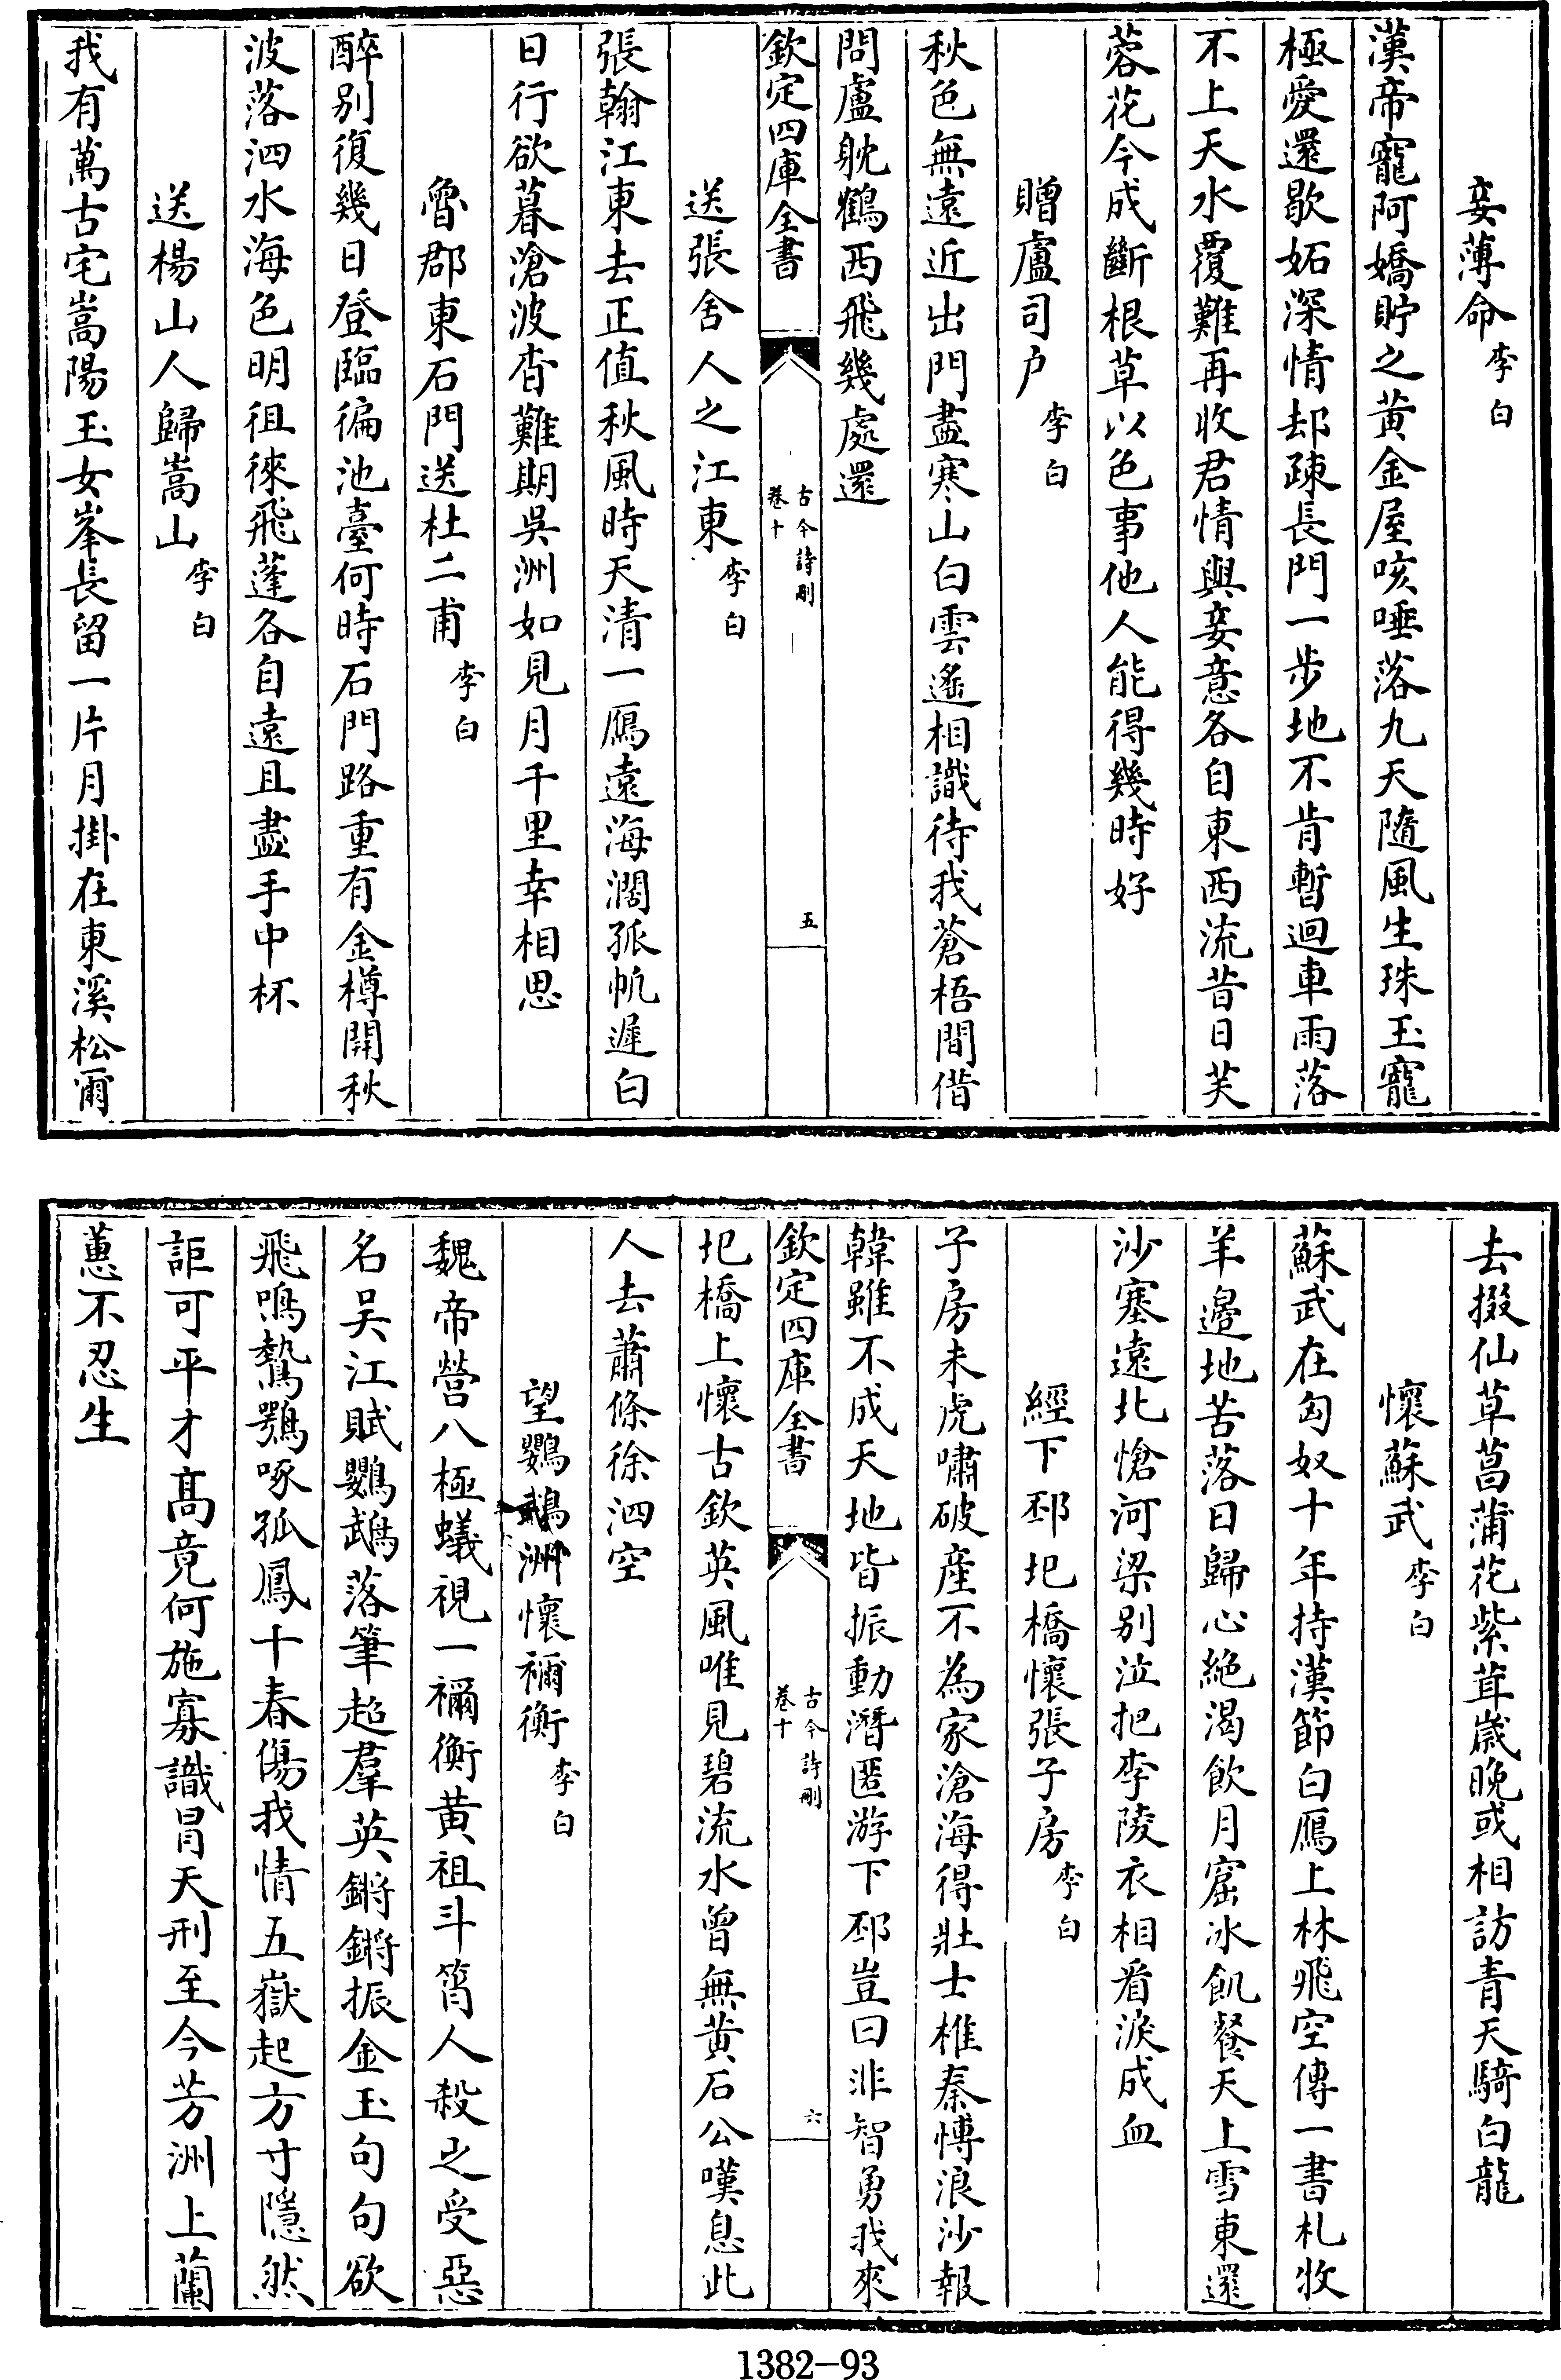 妾薄命李白
漢帝寵阿嬌貯之黄金屋咳唾落九天隨風生珠玉寵
極愛還歇妬深情却疎長門一步地不肯暫迴車雨落
不上天水覆難再收君情與妾意各自東西流昔日芙
蓉花今成斷根草以色事他人能得幾時好
贈盧司户李白
秋色無遠近出門盡寒山白雲遙相識待我蒼梧間借
問盧躭鶴西飛幾處還
欽定四庫全書
古今詩刪
卷十
五
送張舍人之江東李白
張翰江東去正值秋風時天清一鴈遠海濶孤帆遲白
日行欲暮滄波杳難期吳洲如見月千里幸相思
魯郡東石門送杜二甫李白
醉別復幾日登臨徧池臺何時石門路重有金樽開秋
波落泗水海色明徂徠飛蓬各自遠且盡手中杯
送楊山人歸嵩山李白
我有萬古宅嵩陽玉女峯長留一片月掛在東溪松爾
去掇仙草菖蒲花紫茸歲晚或相訪青天騎白龍
懷蘇武李白
蘇武在匈奴十年持漢節白鴈上林飛空傳一書札牧
羊邉地苦落日歸心絶渴飲月窟冰飢餐天上雪東還
沙塞遠北愴河梁别泣把李陵衣相看淚成血
經下邳圯橋懷張子房李白
子房未虎嘯破産不為家滄海得壯士椎秦愽浪沙報
韓雖不成天地皆振動潛匿游下邳豈曰非智勇我來
圯橋上懷古欽英風唯見碧流水曾無黄石公嘆息此
人去蕭條徐泗空
欽定四庫全書
古今詩刪
卷十
六
望鸚鵡洲懷禰衡李白
魏帝營八極蟻視一禰衡黄祖斗筲人殺之受惡
名吴江賦鸚鵡落筆超羣英鏘鏘振金玉句句欲
飛鳴鷙鶚啄孤鳳十春傷我情五嶽起方寸隱然
詎可平才髙竟何施寡識冐天刑至今芳洲上蘭
蕙不忍生
1382-93